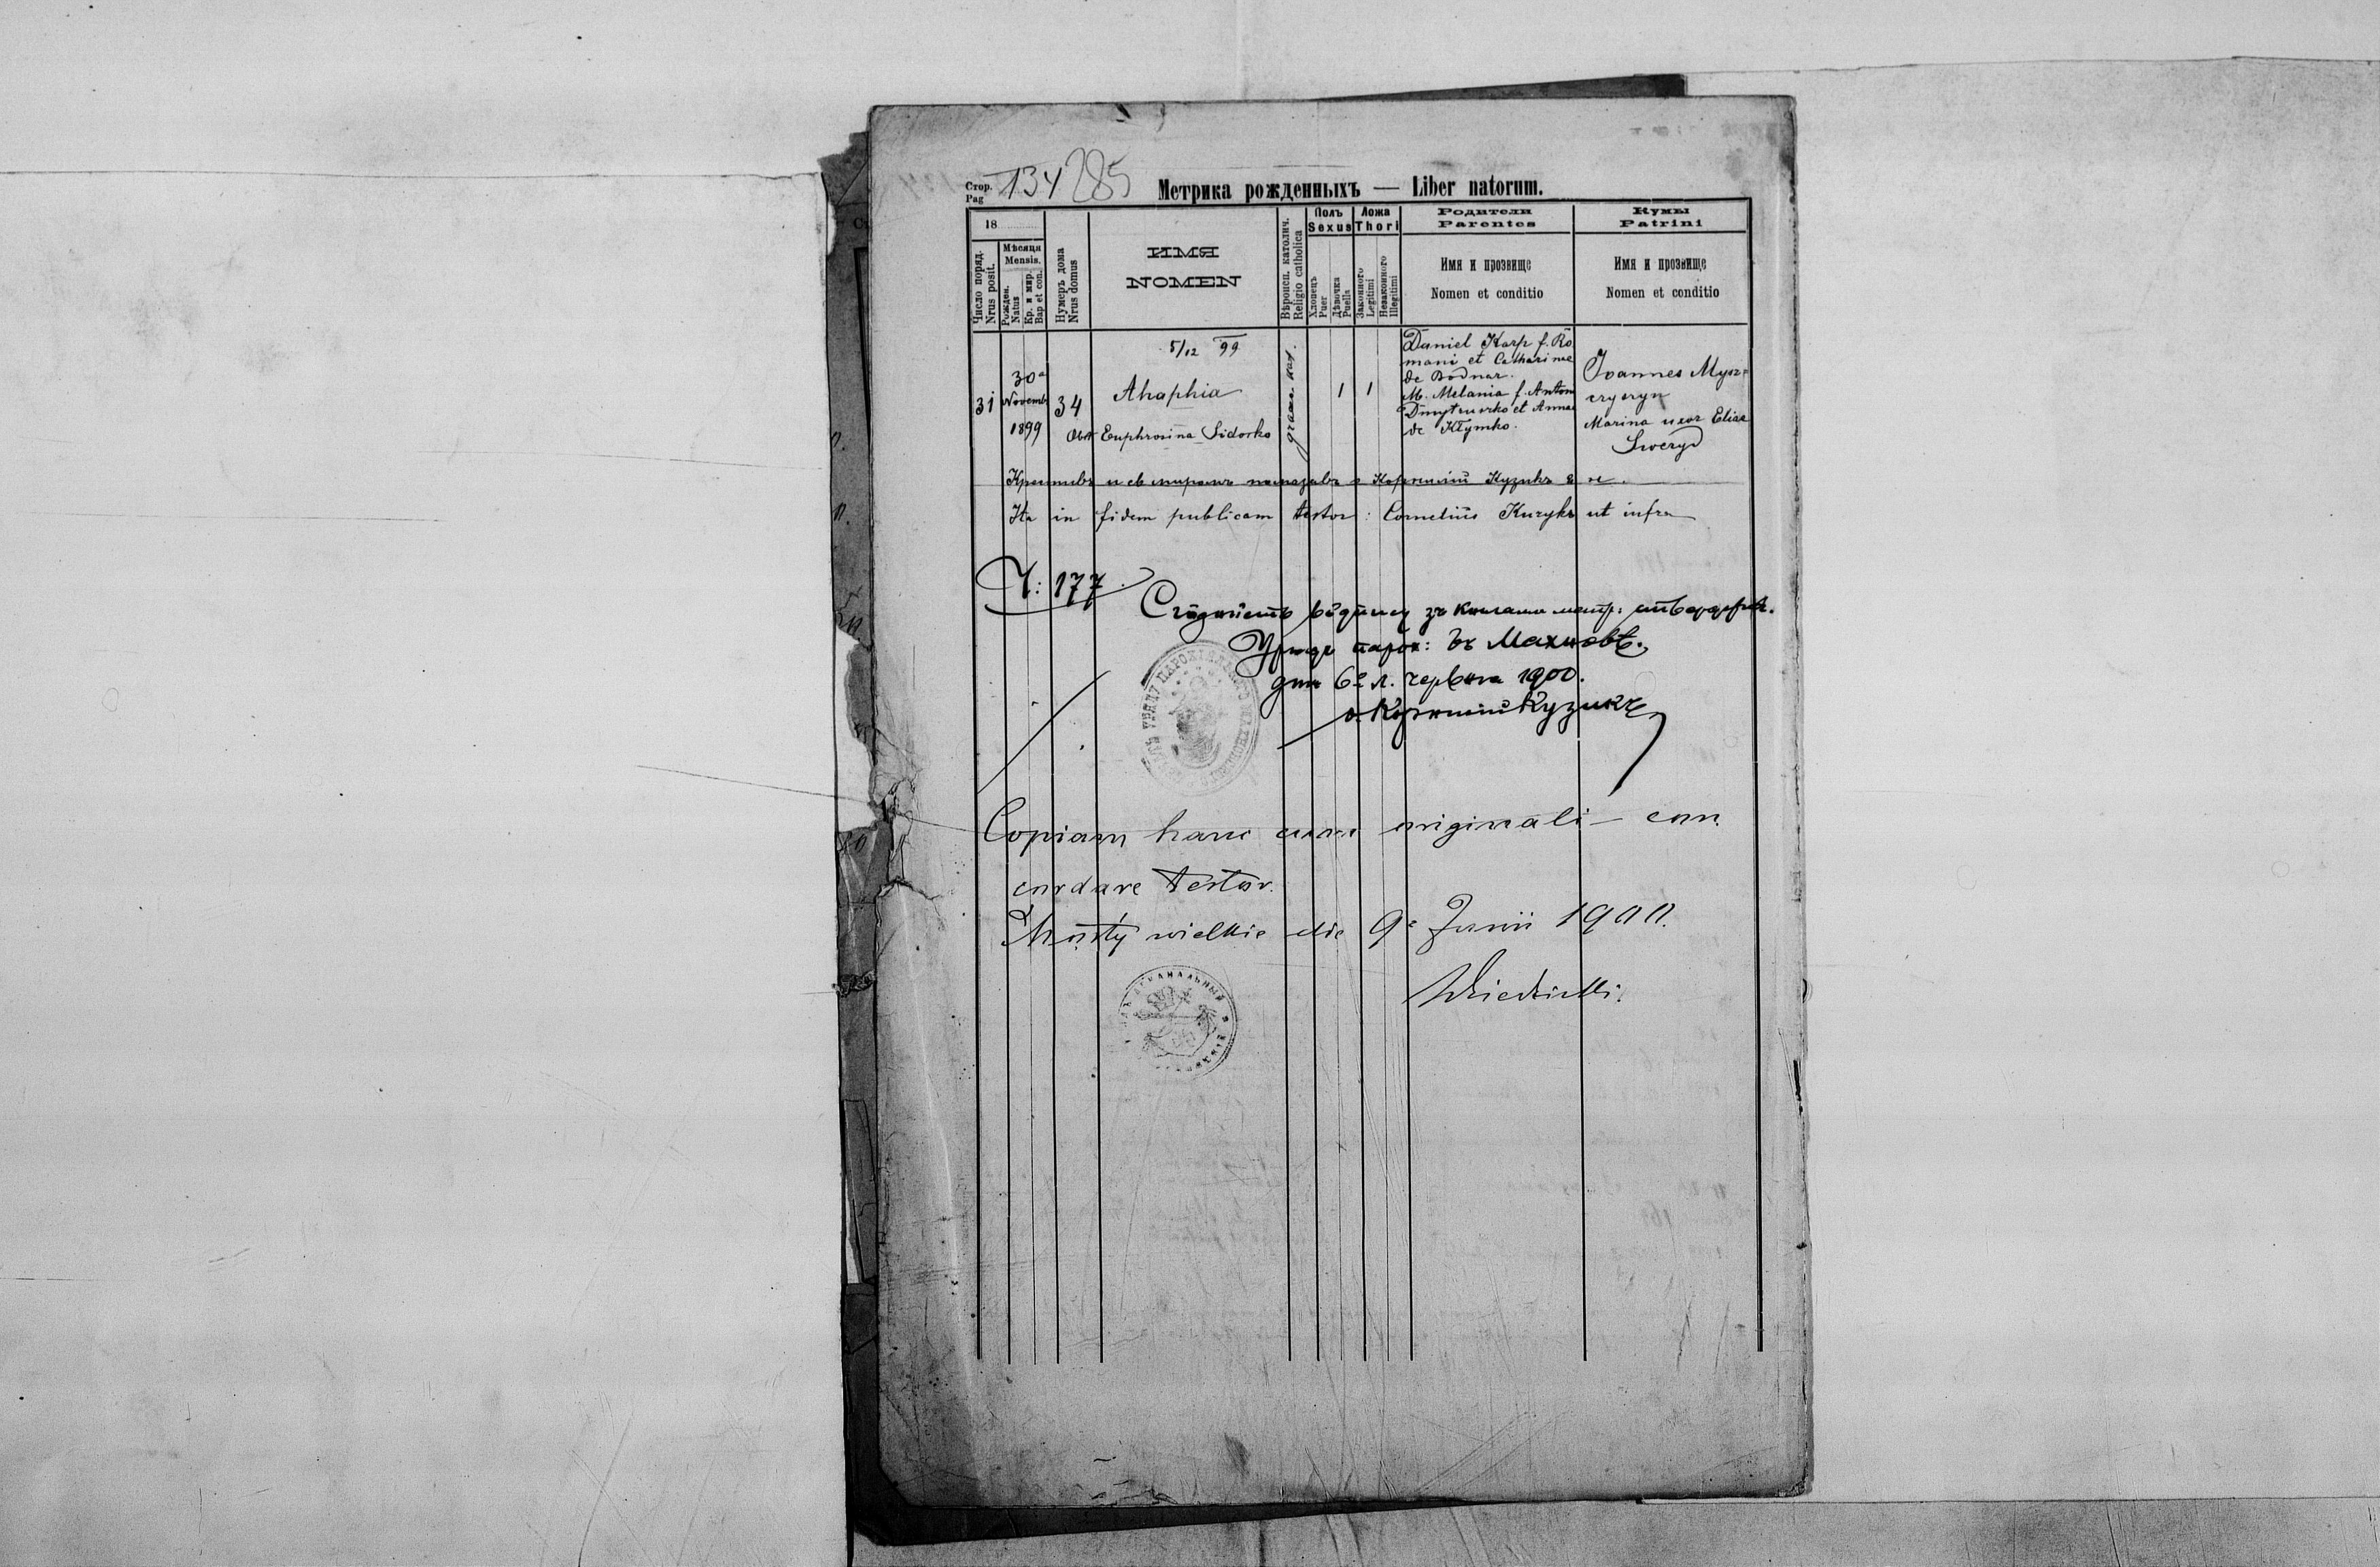 Стор. Pag 134 285 Метрика рожденныхъ — Liber natorum.
18
Число поряд. Nrus posit.
Мѣсяця Mensis.
Рожден. Natus
Кр. и мир. Bap et con.
Нумеръ дома Nrus domus
ИМЯ
NOMEN
Вѣроисп. католич. Religio catholica
Полъ Sexus
Хлопець Puer
Дѣвочка Puella
Ложа Thori
Законного Legitimi
Незаконного Illegitimi
Родители
Parentes
Имя и прозвище
Nomen et conditio
Кумы
Patrini
Имя и прозвище
Nomen et conditio
31
30a
Novemb
1899
34
5/12 99
Ahaphia
Obst Euphrosina Sidorko
graec. kat.
1
1
Daniel Karp f. Ro
mani et Catharinae
de Bodnar.
M. Melania f. Anton
et Annae
de Klymko.
Joannes Mysz=
czyszyn
Marina uxor Eliae
Sweryd
Крестивъ и св миромъ помазавъ о Корнилій Кузикъ
Ita in fidem publicam testor: Cornelius Kuzyk ut infra
Ч: 177
Урядъ парох: въ Махновѣ.
дня 6 л. червня 1900.
о. Корнилій Кузикъ
Copiam hanc cum originali con
cordare testor.
Mosty wielkie die 9a Junii 1900.